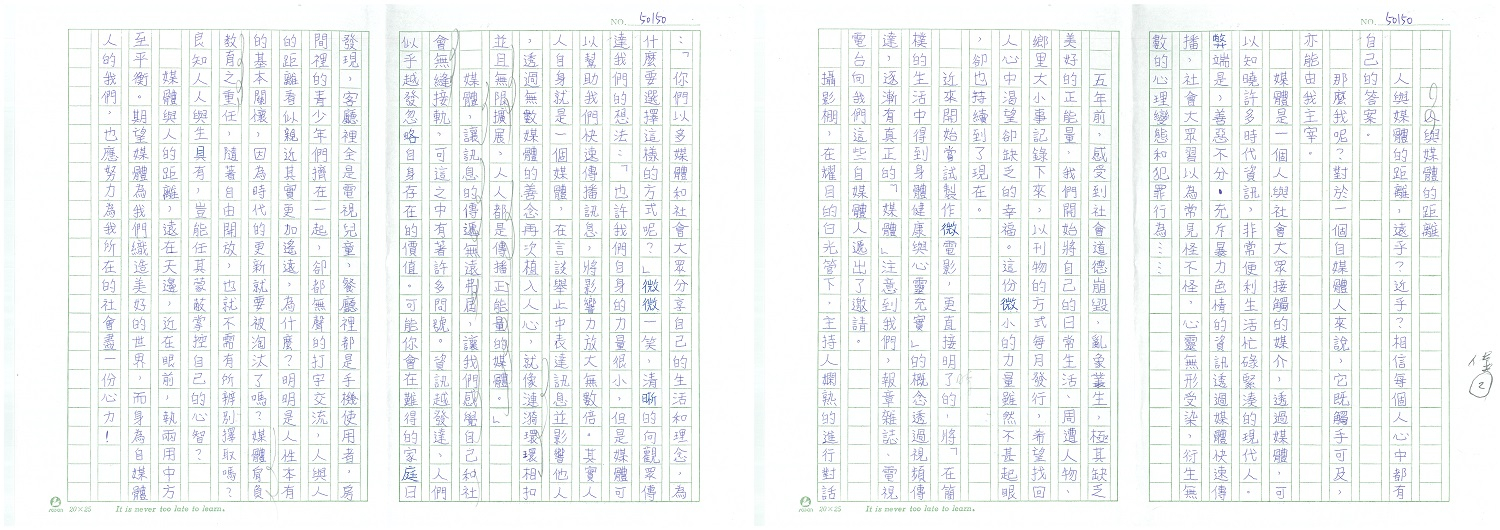 NO. 50150
人與媒體的距離
人與媒體的距離，遠乎？近乎？相信每個人心中都有
自己的答案。
那麼我呢？對於一個自媒體人來說，它既觸手可及，
亦能由我主宰。
媒體是一個個人與社會大眾接觸的媒介，透過媒體，可
以知曉許多時代資訊，非常便利生活忙碌緊湊的現代人。
弊端是，善惡不分，充斥暴力色情的資訊透過媒體快速傳
播，社會大眾習以為常見怪不怪，心靈無形受染，衍生無
數的心理變態和犯罪行為……
五年前，感受到社會道德崩毀，亂象叢生，極其缺乏
美好的正能量，我們開始將自己的日常生活、周遭人物、
鄉里大小事記錄下來，以刊物的方式每月發行，希望找回
人心中渴望卻缺乏的幸福。這份微小的力量雖然不甚起眼
，卻也持續到了現在。
近來開始嘗試製作微電影，更直接明了的，將「在簡
樸的生活中得到身體健康與心靈充實」的概念透過視頻傳
達，逐漸有真正的「媒體」注意到我們，報章雜誌、電視
電台向我們這些自媒體人遞出了邀請。
攝影棚，在耀目的白光管下，主持人嫻熟的進行對話
It is never too late to learn.
20×25
NO. 50150
：「你們以多媒體和社會大眾分享自己的生活和理念，為
什麼要選擇這樣的方式呢？」微微一笑，清晰的向觀眾傳
達我們的想法：「也許我們自身的力量很小，但是媒體可
以幫助我們快速傳播訊息，將影響力放大無數倍。其實人
人自身就是一個媒體，在言談舉止中表達訊息並影響他人
，透過無數媒體的善念再次植入人心，就像漣漪環環相扣
並且無限擴展，人人都是傳播正能量的媒體。」
媒體，讓訊息的傳遞無遠弗屆，讓我們感覺自己和社
會無縫接軌，可這之中有著許多問號。資訊越發達，人們
似乎越發忽略自身存在的價值。可能你會在難得的家庭日
發現，客廳裡全是電視兒童，餐廳裡都是手機使用者，房
間裡的青少年們擠在一起，卻都無聲的打字交流，人與人
的距離看似親近其實更加遙遠，為什麼？明明是人性本有
的基本關懷，因為時代的更新就要被淘汰了嗎？媒體肩負
教育之重任，隨著自由開放，也就不需有所辨別擇取嗎？
良知人人與生具有，豈能任其蒙蔽掌控自己的心智？
媒體與人的距離，遠在天邊，近在眼前，執兩用中方
至平衡。期望媒體為我們織造美好的世界，而身為自媒體
人的我們，也應努力為我所在的社會盡一份心力！
It is never too late to learn.
20×25
佳
2